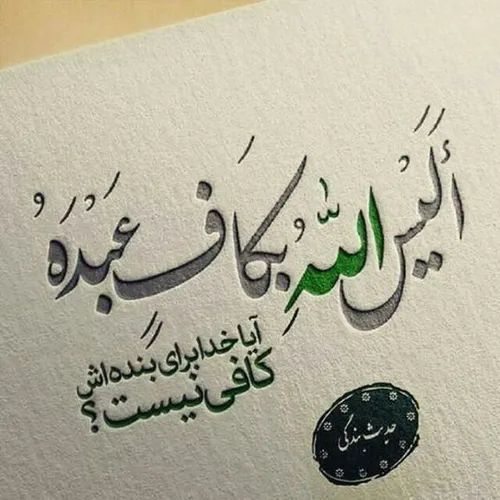 أَلَیْسَ اللّٰهُ بِکَافٍ عَبْدَهُ
آیا خدا برای بنده‌اش
کافی نیست؟
حدیث بندگی